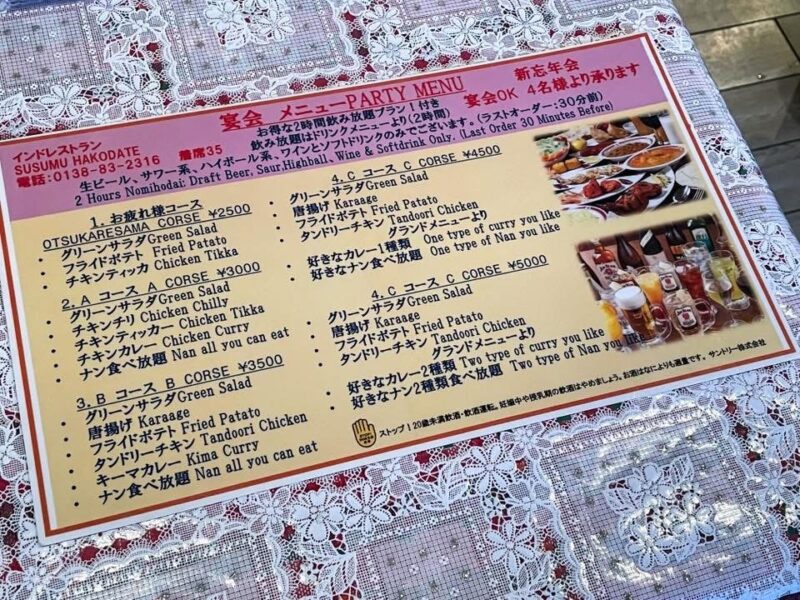 宴会 メニューPARTY MENU
新忘年会
お得な2時間飲み放題プラン!付き
宴会OK 4名様より承ります
飲み放題はドリンクメニューより(2時間)
インドレストラン
SUSUMU HAKODATE
電話:0138-83-2316 着席35
生ビール、サワー系、ハイボール系、ワインとソフトドリンクのみでございます。(ラストオーダー:30分前)
2 Hours Nomihodai: Draft Beer, Saur,Highball, Wine & Softdrink Only. (Last Order 30 Minutes Before)
1. お疲れ様コース
OTSUKARESAMA CORSE ¥2500
・ グリーンサラダGreen Salad
・ フライドポテト Fried Patato
・ チキンティッカ Chicken Tikka
2. A コース A CORSE ¥3000
・ グリーンサラダGreen Salad
・ チキンチリ Chicken Chilly
・ チキンティッカー Chicken Tikka
・ チキンカレー Chicken Curry
・ ナン食べ放題 Nan all you can eat
3. B コース B CORSE ¥3500
・ グリーンサラダGreen Salad
・ 唐揚げ Karaage
・ フライドポテト Fried Patato
・ タンドリーチキン Tandoori Chicken
・ キーマカレー Kima Curry
・ ナン食べ放題 Nan all you can eat
4. C コース C CORSE ¥4500
・ グリーンサラダGreen Salad
・ 唐揚げ Karaage
・ フライドポテト Fried Patato
・ タンドリーチキン Tandoori Chicken
グランドメニューより
・ 好きなカレー1種類 One type of curry you like
・ 好きなナン食べ放題 One type of Nan you like
4. C コース C CORSE ¥5000
・ グリーンサラダGreen Salad
・ 唐揚げ Karaage
・ フライドポテト Fried Patato
・ タンドリーチキン Tandoori Chicken
グランドメニューより
・ 好きなカレー2種類 Two type of curry you like
・ 好きなナン2種類食べ放題 Two type of Nan you like
ストップ!20歳未満飲酒・飲酒運転。妊娠中や授乳期の飲酒はやめましょう。お酒はなによりも適量です。サントリー株式会社